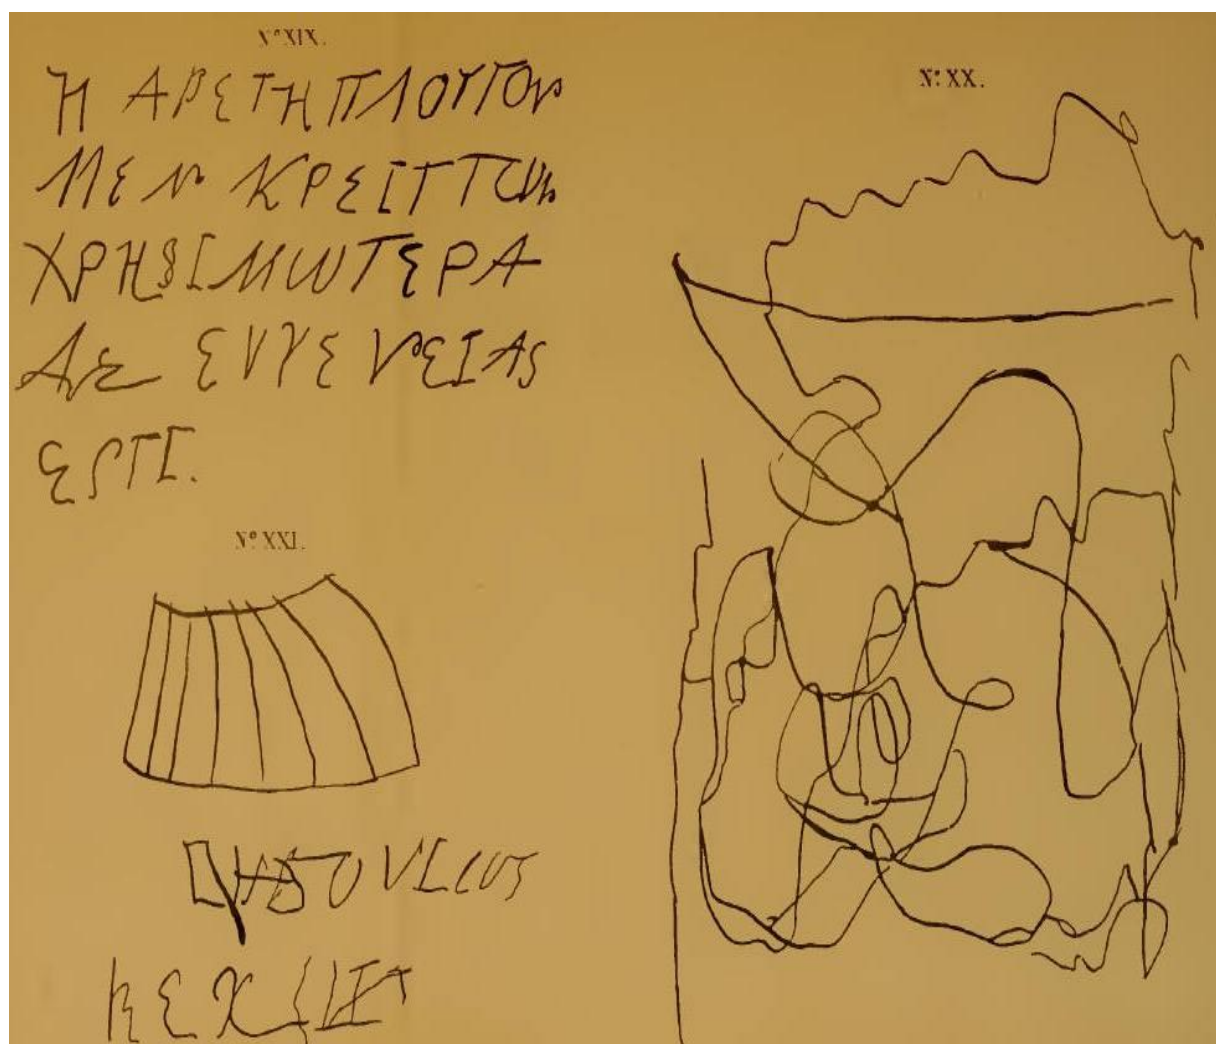 Nº XIX.
Η ΑΡΕΤΗ ΠΛΟΥΤΟΝ
ΜΕΝ ΚΡΕΙΤΤΩΝ
ΧΡΗΣΙΜΩΤΕΡΑ
ΔΕ ΕΥΓΕΝΕΙΑΣ
ΕΣΤΙ.
Nº XXI.
Nº XX.